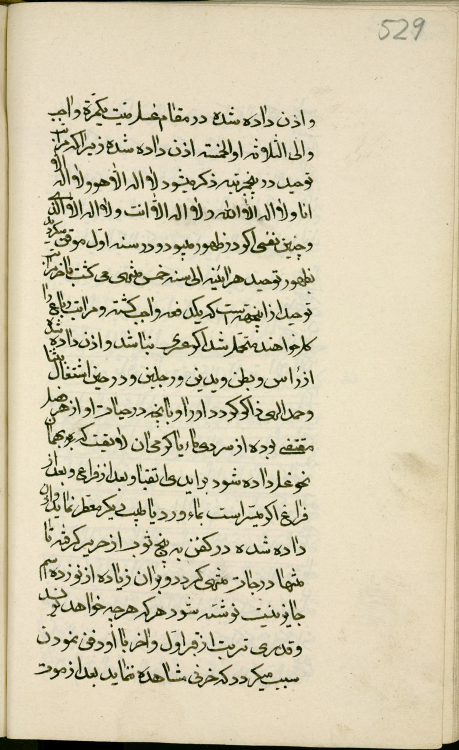 529
و اذن داده شده در مقام غسل میت یکمرّة واجب
والی الثلاثه او الخمسه اذن داده شده زیرا که مراتب
توحید در پنج رتبه ذکر میشود لا اله الا هو و لا اله الا
انا و لا اله الا الله و لا اله الا انت و لا اله الا الذی
و چنین نفسی اگر در ظهور میبود در سنه اوّل موقن میگردید
بظهور توحید هر آینه الی سنه خمس منتهی می گشت تا آخر مراتب
توحید از اینجهت است که یکدفعه واجب گشته و مراتب را
کل خواهند متحمل شد اگر عری نباشد و اذن داده شده
از رأس و بطن و یدین و رجلین و در حین اشتغال
و حمد الهی ذاکر گردد او را و بآنچه در حیات او از هر
مقتضی بوده از سردی ماء یا گرمی آن لایق است که بهمان
نحو غسل داده شود بایدی اتقیا و بعد از فراغ و بعد از
فراغ اگر میسّر است بماء ورد یا طیب دیگر معطر نماید و اذن
داده شده در کفن به پنج ثوب از حریر گرفته تا
منتها درجات منتهی گردد و بر آن زیاده از نوزده اسم
جایز نیست نوشته شود هر کس هر چه خواهد نویسد
و قدری تربت از قبر اوّل و آخر با او دفن نمودن
سبب میگردد که حزنی مشاهده ننماید بعد از موت